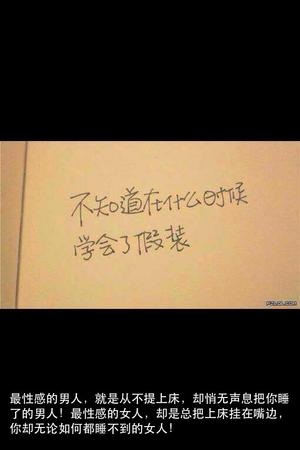 不知道在什么时候
学会了假装
PZLDL.COM
最性感的男人，就是从不提上床，却悄无声息把你睡
了的男人！最性感的女人，却是总把上床挂在嘴边，
你却无论如何都睡不到的女人！